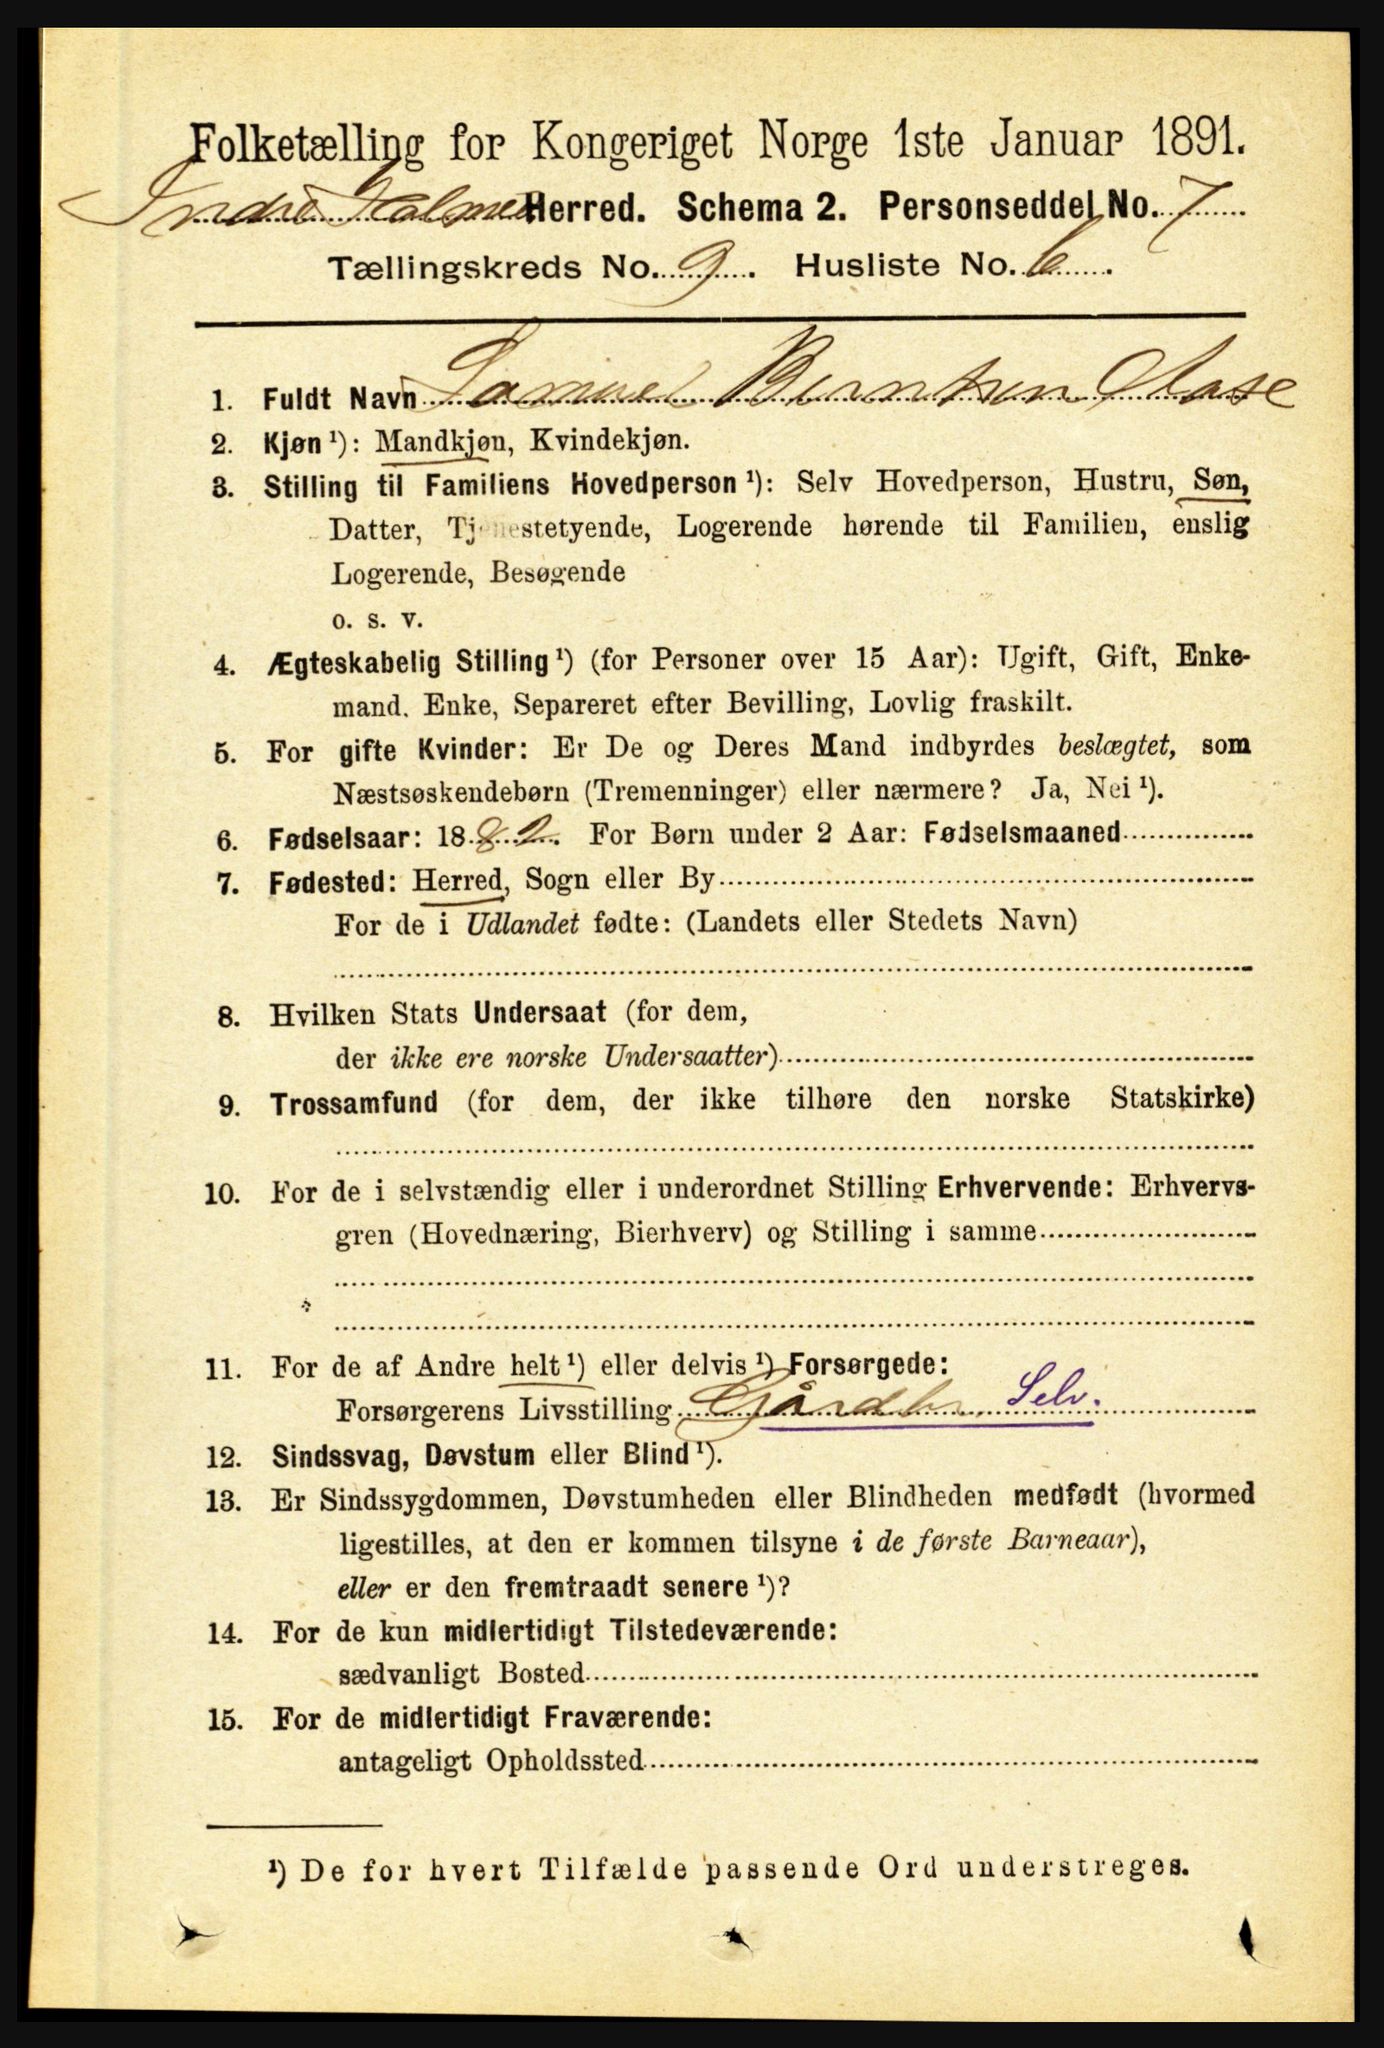 Folketælling for Kongeriget Norge 1ste Januar 1891.
Indre Holmedal Herred. Schema 2. Personseddel No. 7
Tællingskreds No. 9. Husliste No. 6.
1. Fuldt Navn Samuel Berntsen Aase
2. Kjøn ¹): Mandkjøn, Kvindekjøn.
3. Stilling til Familiens Hovedperson ¹): Selv Hovedperson, Hustru, Søn,
Datter, Tjenestetyende, Logerende hørende til Familien, enslig
Logerende, Besøgende
o. s. v.
4. Ægteskabelig Stilling ¹) (for Personer over 15 Aar): Ugift, Gift, Enke-
mand. Enke, Separeret efter Bevilling, Lovlig fraskilt.
5. For gifte Kvinder: Er De og Deres Mand indbyrdes beslægtet, som
Næstsøskendebørn (Tremenninger) eller nærmere? Ja, Nei ¹).
6. Fødselsaar: 1882. For Børn under 2 Aar: Fødselsmaaned
7. Fødested: Herred, Sogn eller By
For de i Udlandet fødte: (Landets eller Stedets Navn)
8. Hvilken Stats Undersaat (for dem,
der ikke ere norske Undersaatter)
9. Trossamfund (for dem, der ikke tilhøre den norske Statskirke)
10. For de i selvstændig eller i underordnet Stilling Erhvervende: Erhvervs-
gren (Hovednæring, Bierhverv) og Stilling i samme
11. For de af Andre helt ¹) eller delvis ¹) Forsørgede:
Forsørgerens Livsstilling Gårdbr. Selv.
12. Sindssvag, Døvstum eller Blind ¹).
13. Er Sindssygdommen, Døvstumheden eller Blindheden medfødt (hvormed
ligestilles, at den er kommen tilsyne i de første Barneaar),
eller er den fremtraadt senere ¹)?
14. For de kun midlertidigt Tilstedeværende:
sædvanligt Bosted
15. For de midlertidigt Fraværende:
antageligt Opholdssted
¹) De for hvert Tilfælde passende Ord understreges.